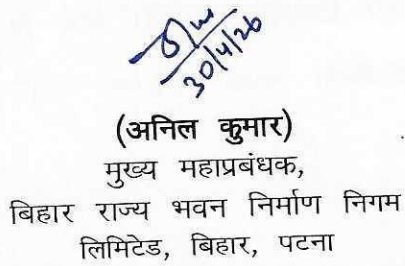 30/4/26
(अनिल कुमार)
मुख्य महाप्रबंधक,
बिहार राज्य भवन निर्माण निगम
लिमिटेड, बिहार, पटना